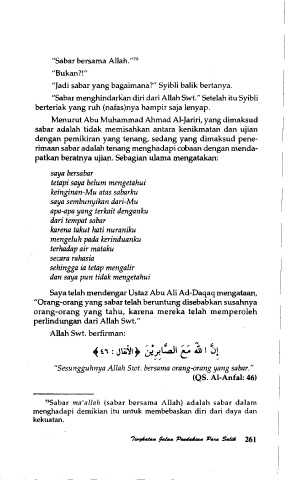 "Sabar bersama Allah."⁷⁵
"Bukan?!"
"Jadi sabar yang bagaimana?" Syibli balik bertanya.
"Sabar menghindarkan diri dari Allah Swt." Setelah itu Syibli
berteriak yang ruh (nafas)nya hampir saja lenyap.
Menurut Abu Muhammad Ahmad Al-Jariri, yang dimaksud
sabar adalah tidak memisahkan antara kenikmatan dan ujian
dengan pemikiran yang tenang, sedang yang dimaksud pene-
rimaan sabar adalah tenang menghadapi cobaan dengan menda-
patkan beratnya ujian. Sebagian ulama mengatakan:
saya bersabar
tetapi saya belum mengetahui
keinginan-Mu atas sabarku
saya sembunyikan dari-Mu
apa-apa yang terkait denganku
dari tempat sabar
karena takut hati nuraniku
mengeluh pada kerinduanku
terhadap air mataku
secara rahasia
sehingga ia tetap mengalir
dan saya pun tidak mengetahui
Saya telah mendengar Ustaz Abu Ali Ad-Daqaq mengataan,
"Orang-orang yang sabar telah beruntung disebabkan susahnya
orang-orang yang tahu, karena mereka telah memperoleh
perlindungan dari Allah Swt."
Allah Swt. berfirman:
إِنَّ اللّٰهَ مَعَ الصَّابِرِيْنَ ﴿الأنفال : ٤٦﴾
"Sesungguhnya Allah Swt. bersama orang-orang yang sabar."
(QS. Al-Anfal: 46)
⁷⁵Sabar ma'allah (sabar bersama Allah) adalah sabar dalam
menghadapi demikian itu untuk membebaskan diri dari daya dan
kekuatan.
Tingkatan Jalan Pendakian Para Salik 261